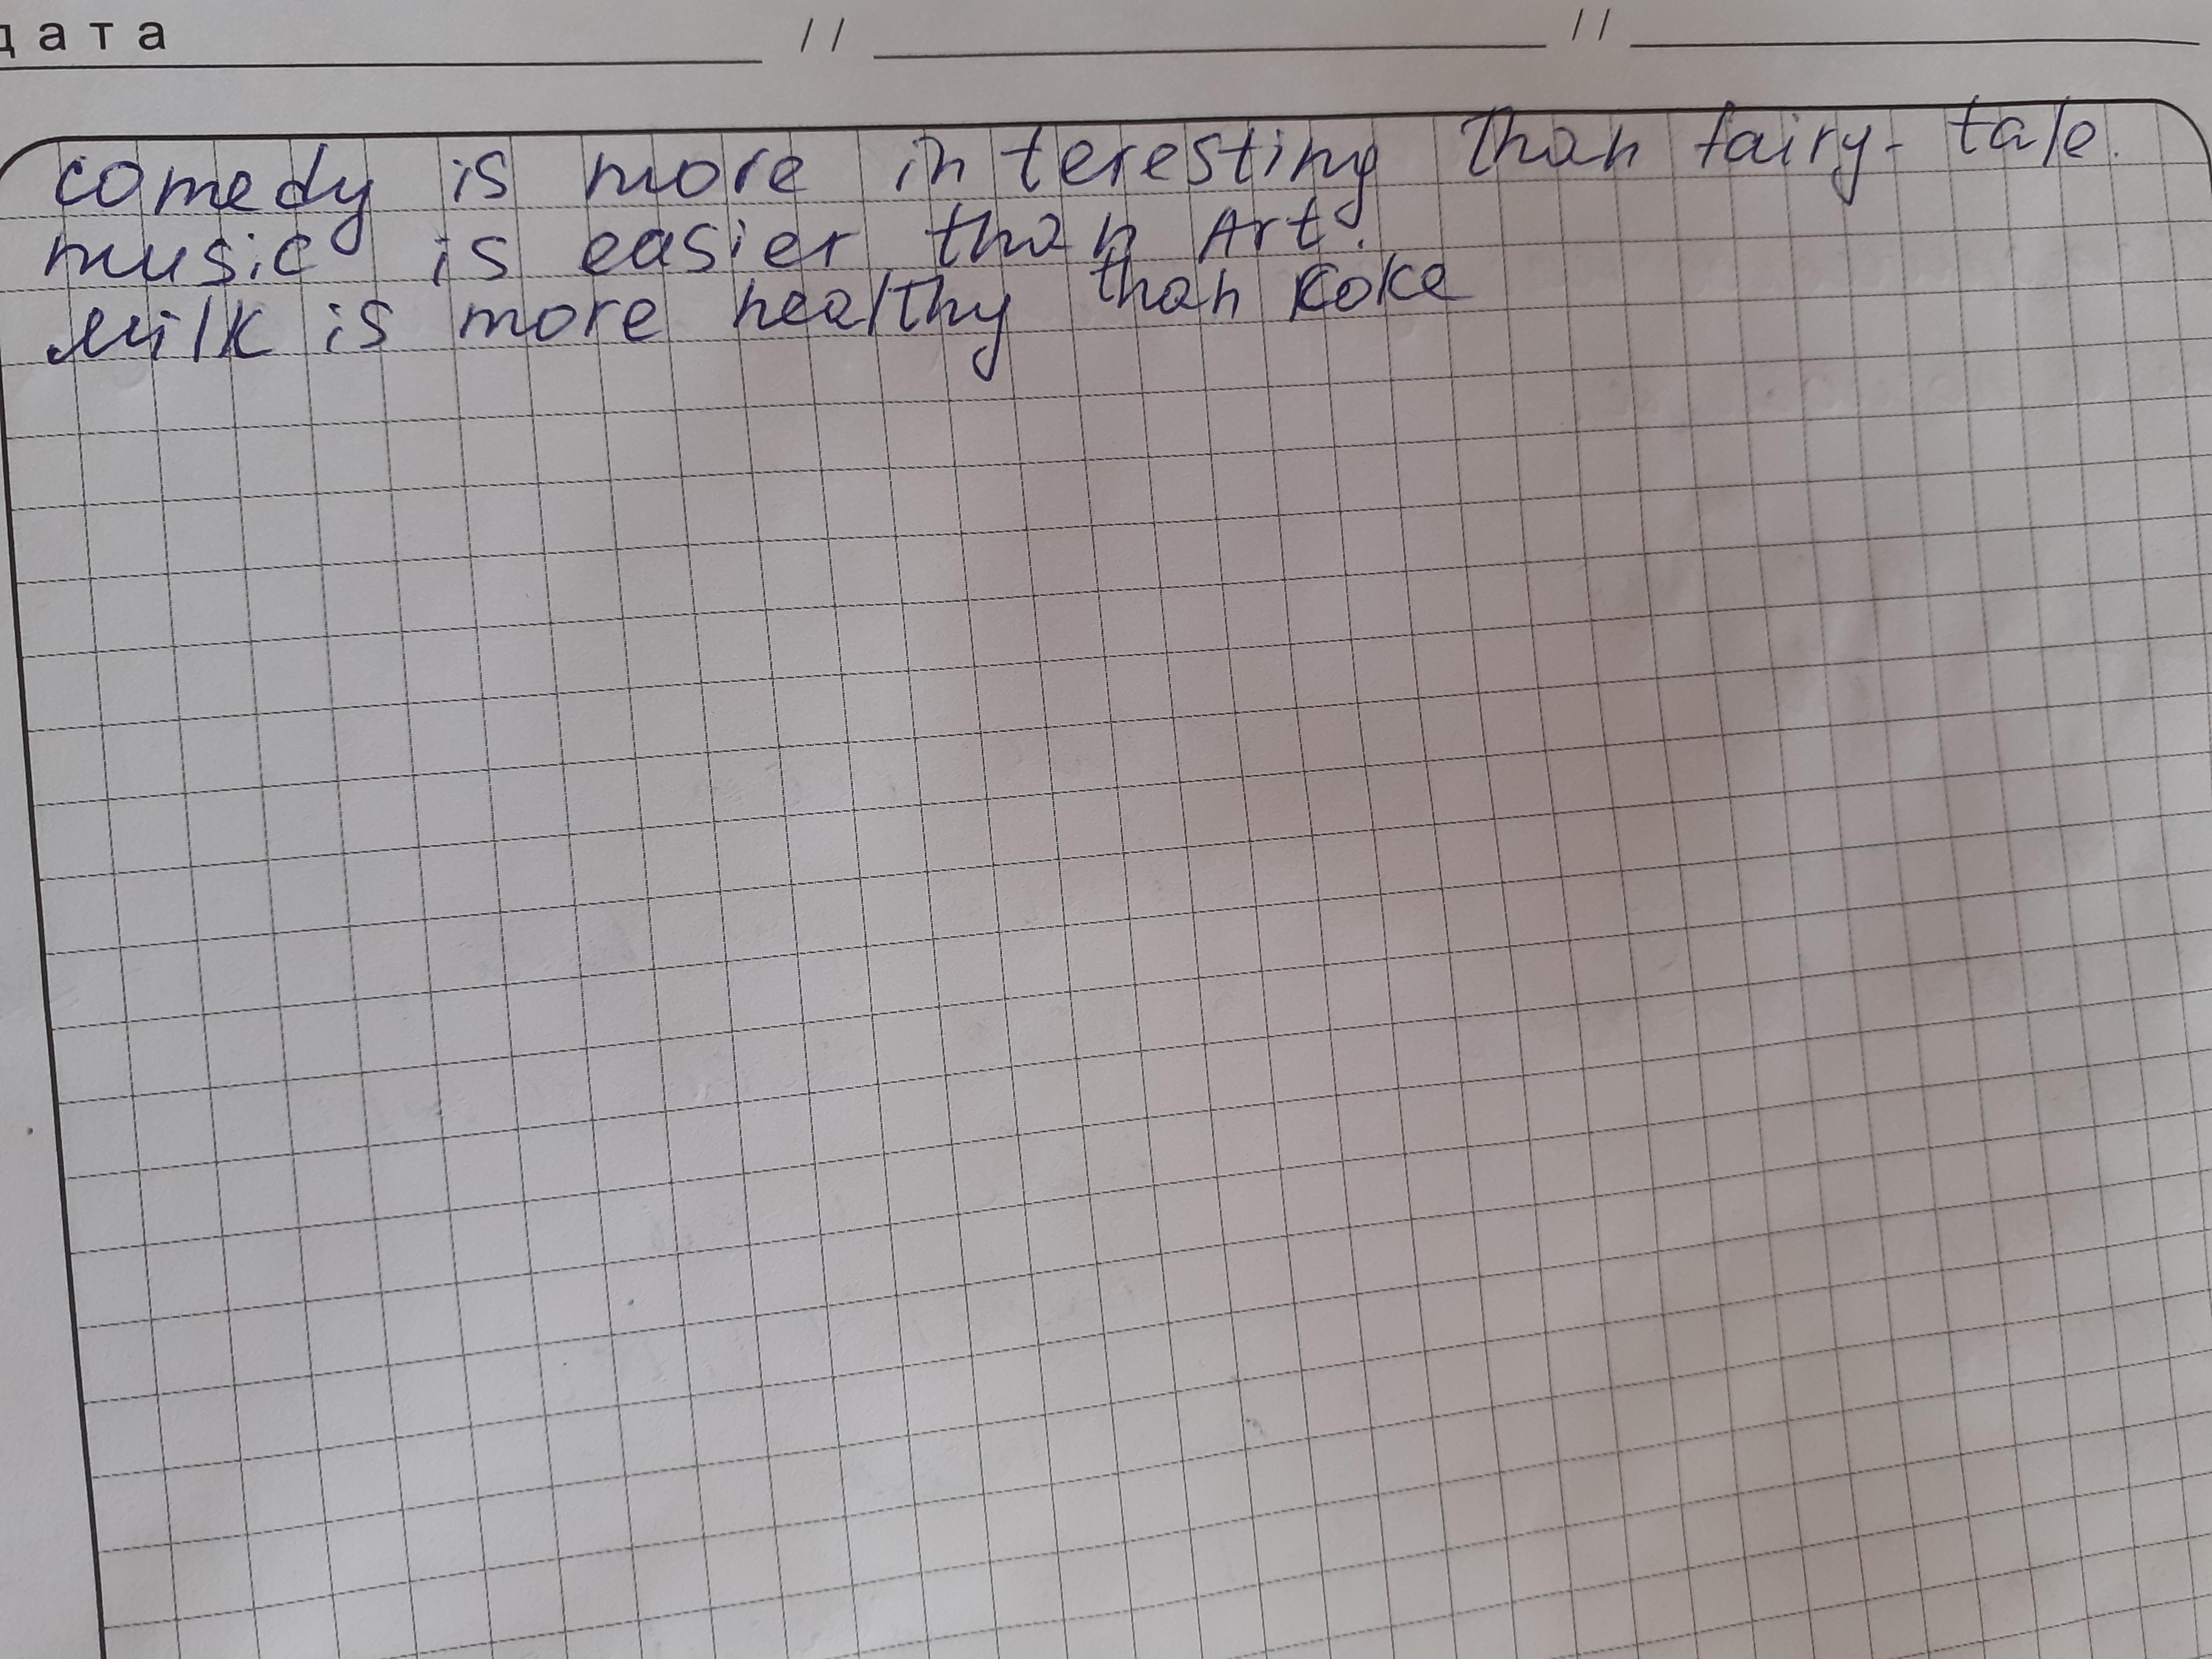 дата // //
comedy is more interesting than fairy-tale.
music is easier than Art.
milk is more healthy than Coke